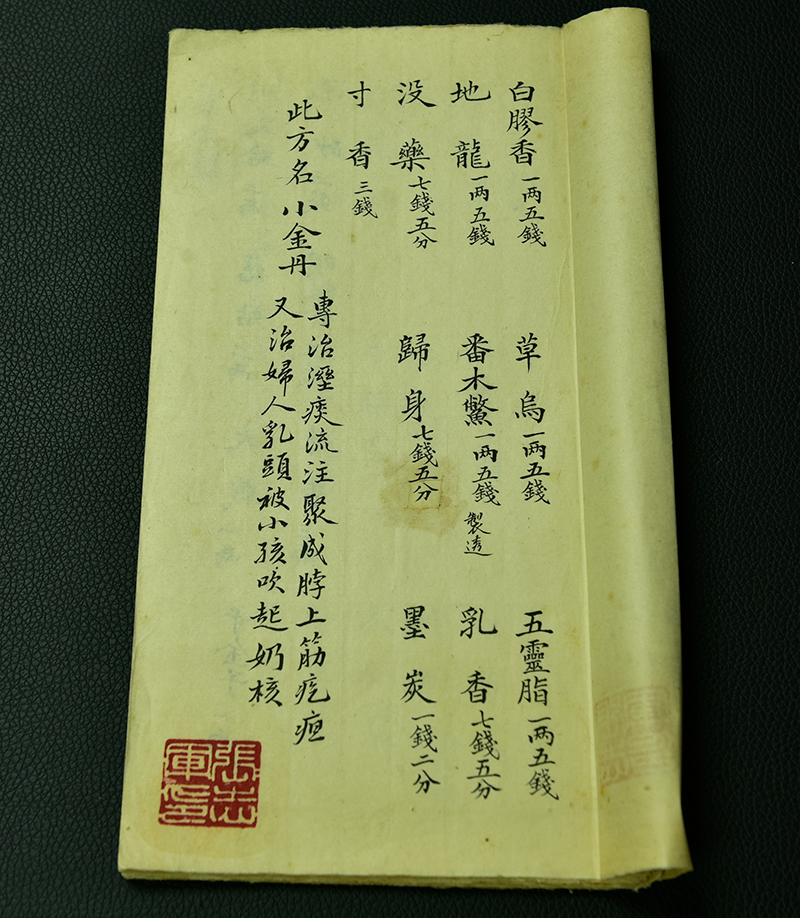 白膠香 一两五錢 草烏 一两五錢 五靈脂 一两五錢
地龍 一两五錢 番木鱉 一两五錢 製透 乳香 七錢五分
没藥 七錢五分 歸身 七錢五分 墨炭 一錢二分
寸香 三錢
此方名小金丹
專治溼痰流注聚成脖上筋疙疸
又治婦人乳頭被小孩吹起奶核
張志軍印